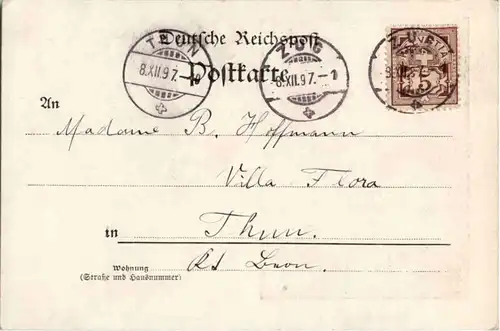 Deutsche Reichspost
Postkarte
THUN
8.XII.97.
ZUG
8.XII.97.-7
ZUG
HELVETIA
5
An
Madame B. Hoffmann
Villa Flora
in Thun.
Wohnung
(Straße und Hausnummer)
Kt Bern.